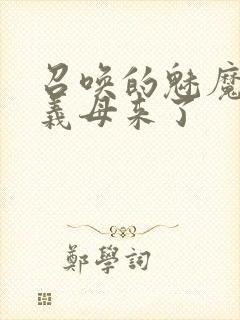 召唤的魅魔
義母来了
鄭學詞